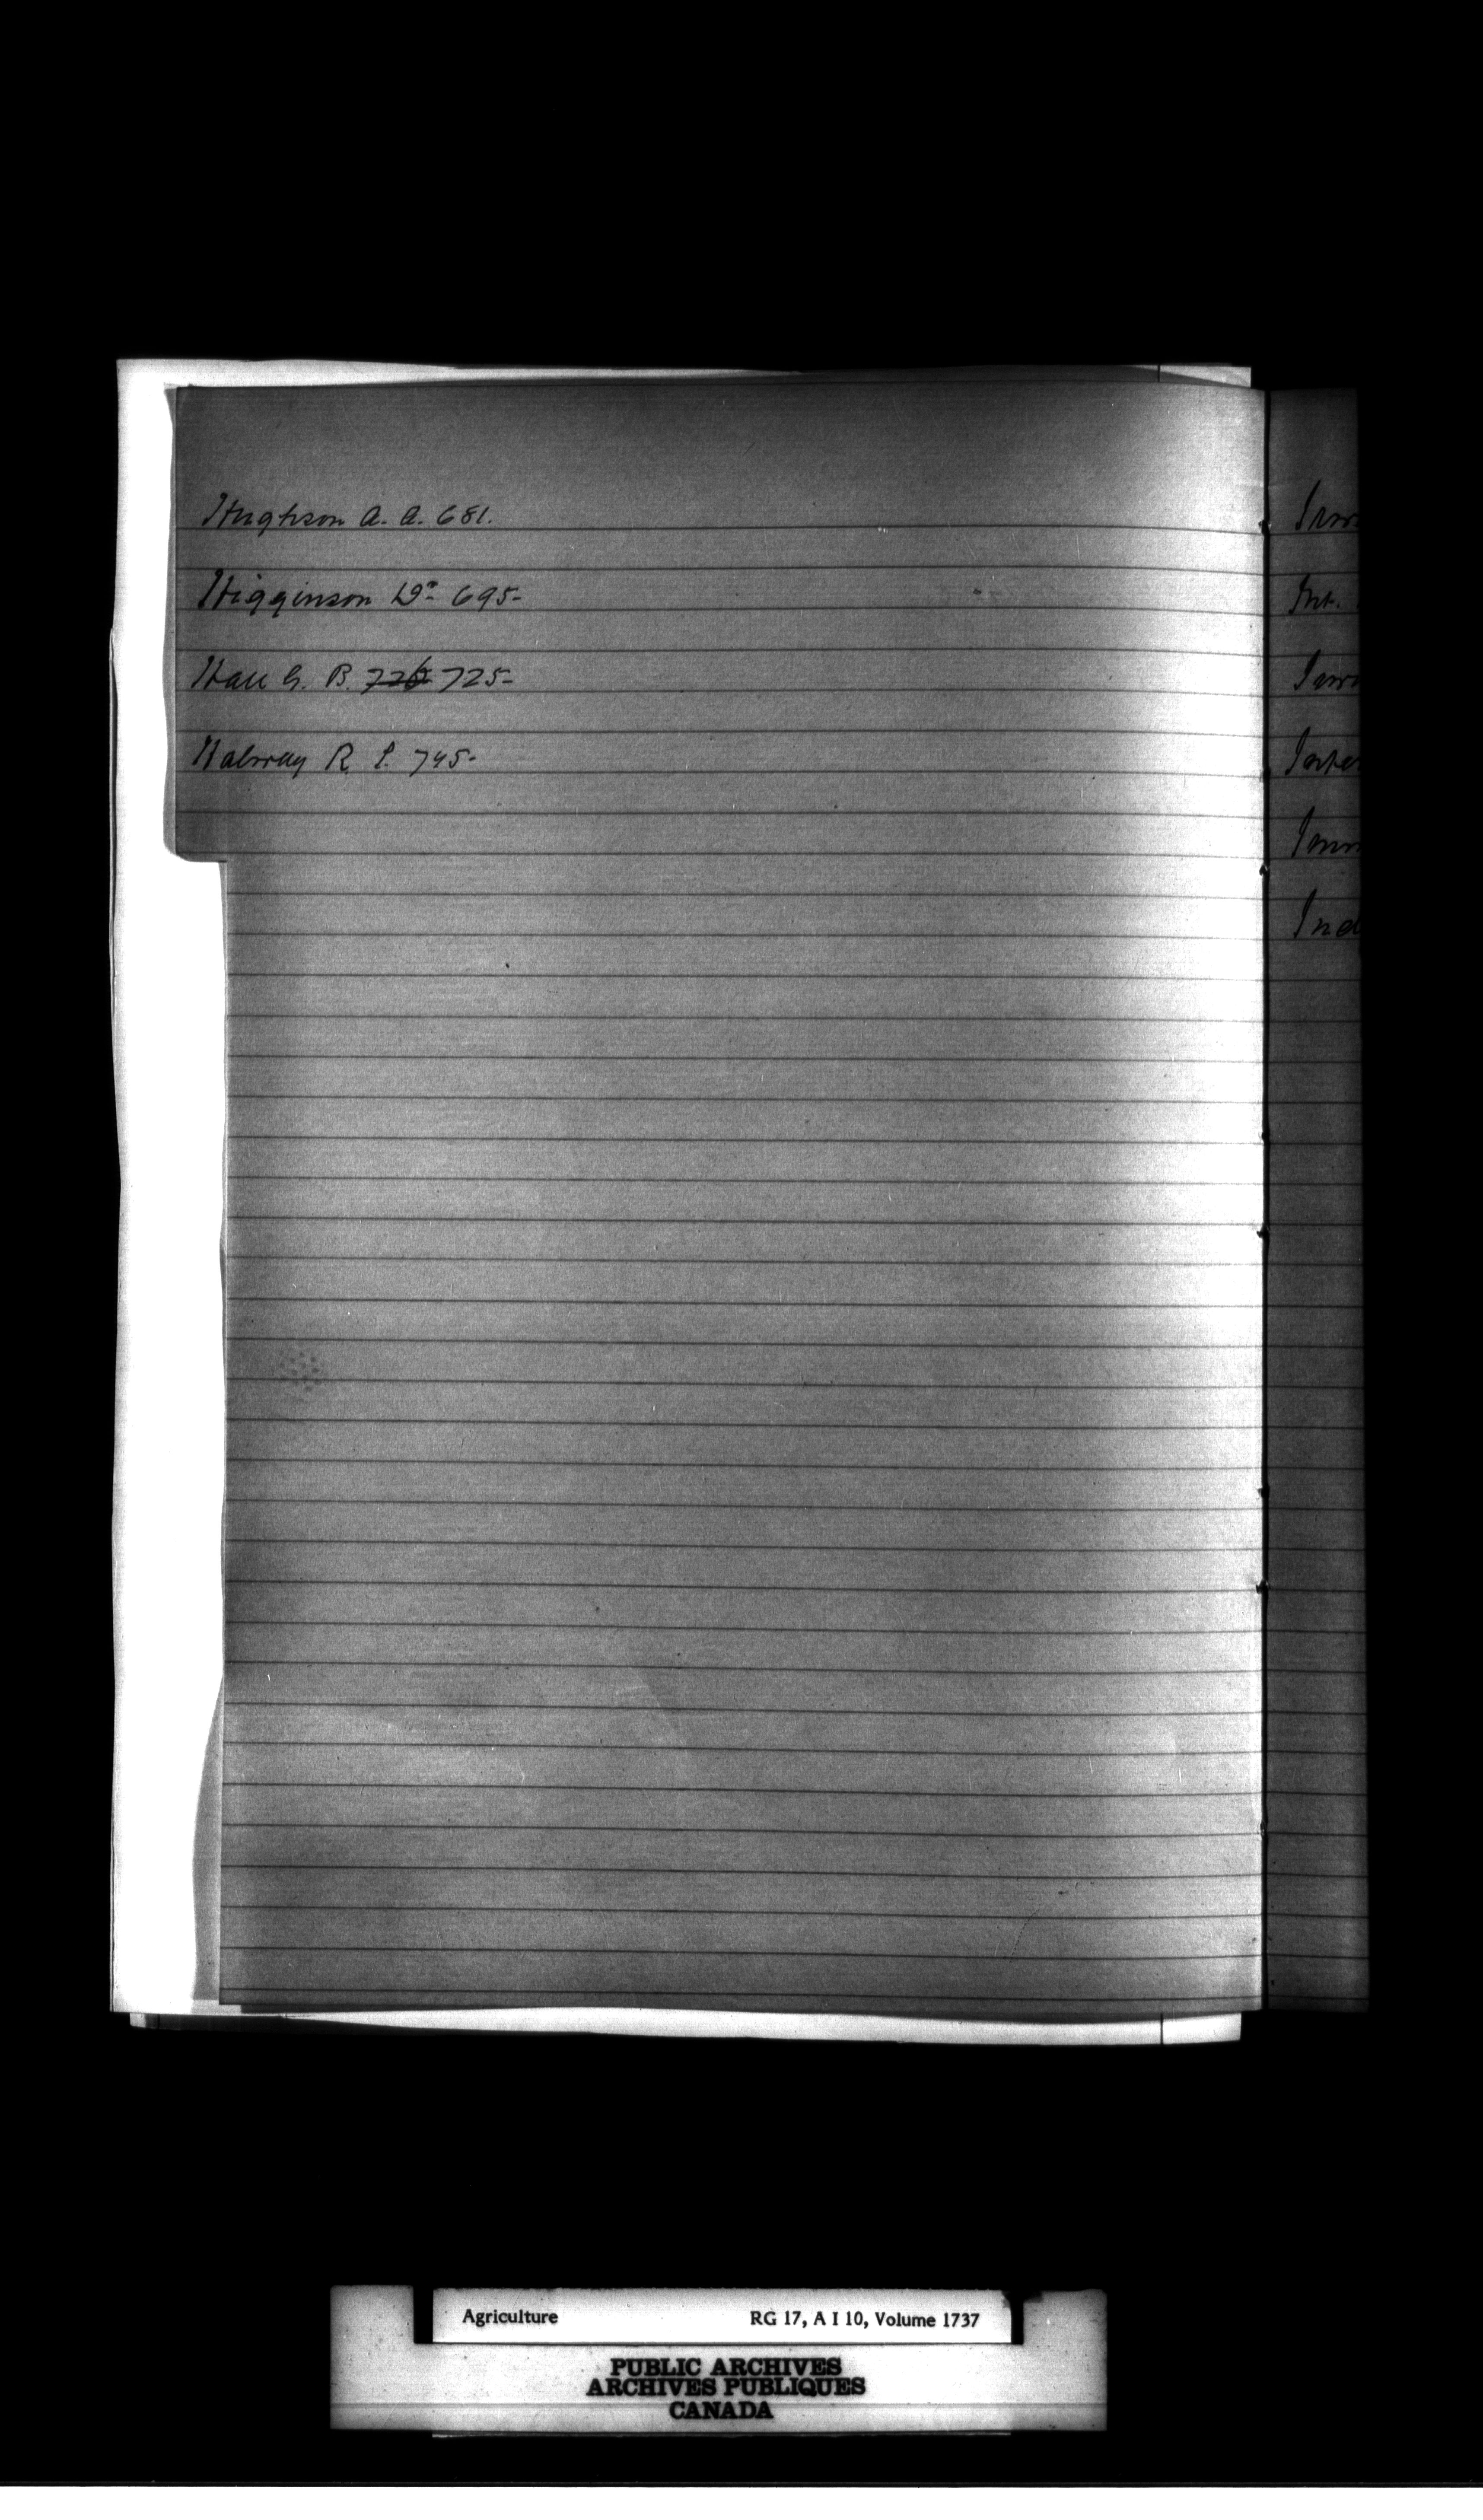 Hughson A. A. 681.
Higginson Dr 695-
Hall G. B. 726 725-
Halway R. P. 745-
Int.
Ind
Agriculture RG 17, A I 10, Volume 1737
PUBLIC ARCHIVES
ARCHIVES PUBLIQUES
CANADA